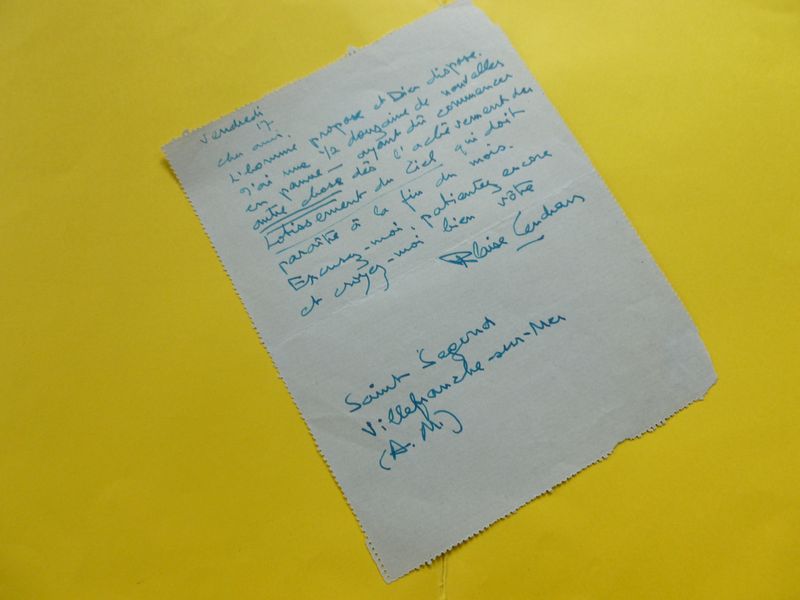 Vendredi
17
cher ami,
L'homme propose et Dieu dispose.
J'ai une 1/2 douzaine de nouvelles
en panne — ayant dû commencer
autre chose dès l'achèvement du
Lotissement du Ciel qui doit
paraître à la fin du mois.
Excusez-moi, patientez encore
et croyez-moi bien vôtre
Blaise Cendrars
Saint-Segond
Villefranche-sur-Mer
(A.M.)